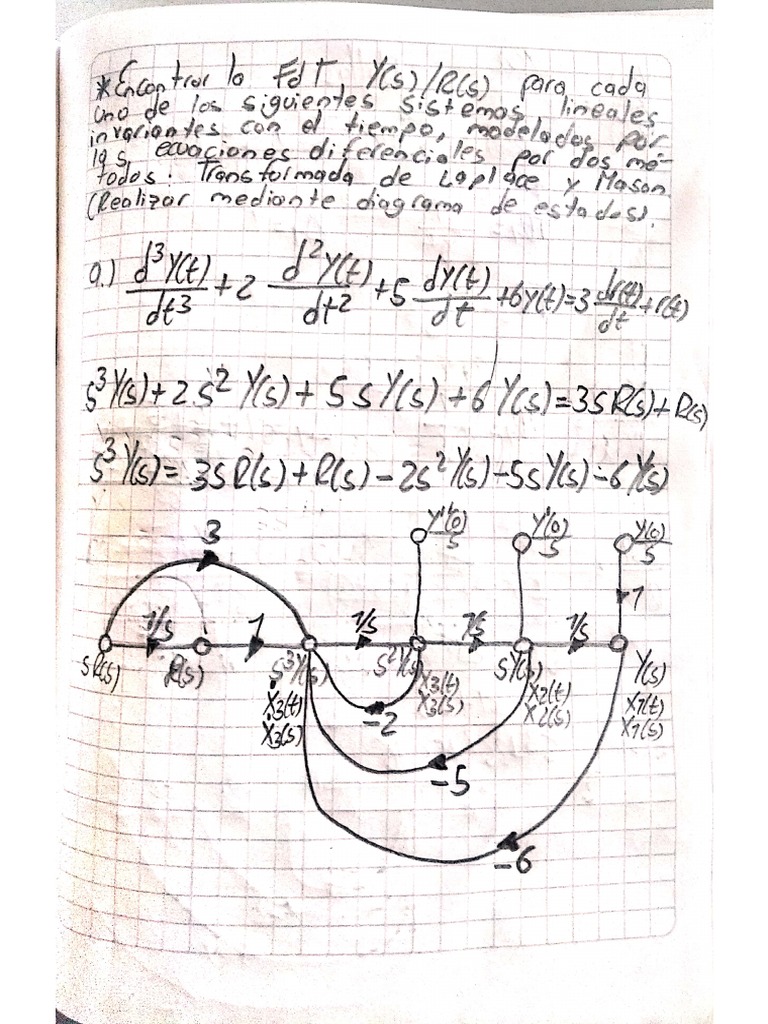 *Encontrar la FdT Y(s)/R(s) para cada
uno de los siguientes sistemas lineales
invariantes con el tiempo, modelados por
las ecuaciones diferenciales por dos mé-
todos: Transformada de Laplace y Mason
(Realizar mediante diagrama de estados).
a.) d³Y(t)/dt³ + 2 d²Y(t)/dt² + 5 dY(t)/dt + 6y(t) = 3 dr(t)/dt + r(t)
s³Y(s) + 2s² Y(s) + 5sY(s) + 6Y(s) = 3sR(s) + R(s)
s³Y(s) = 3sR(s) + R(s) - 2s²Y(s) - 5sY(s) - 6Y(s)
3 Y''(0)/s Y'(0)/s Y(0)/s
1/s 1 1/s 1/s 1/s 1
sR(s) R(s) s³Y(s) s²Y(s) sY(s) Y(s)
Ẋ3(t) X3(t) X2(t) X1(t)
Ẋ3(s) X3(s) X2(s) X1(s)
-2
-5
-6